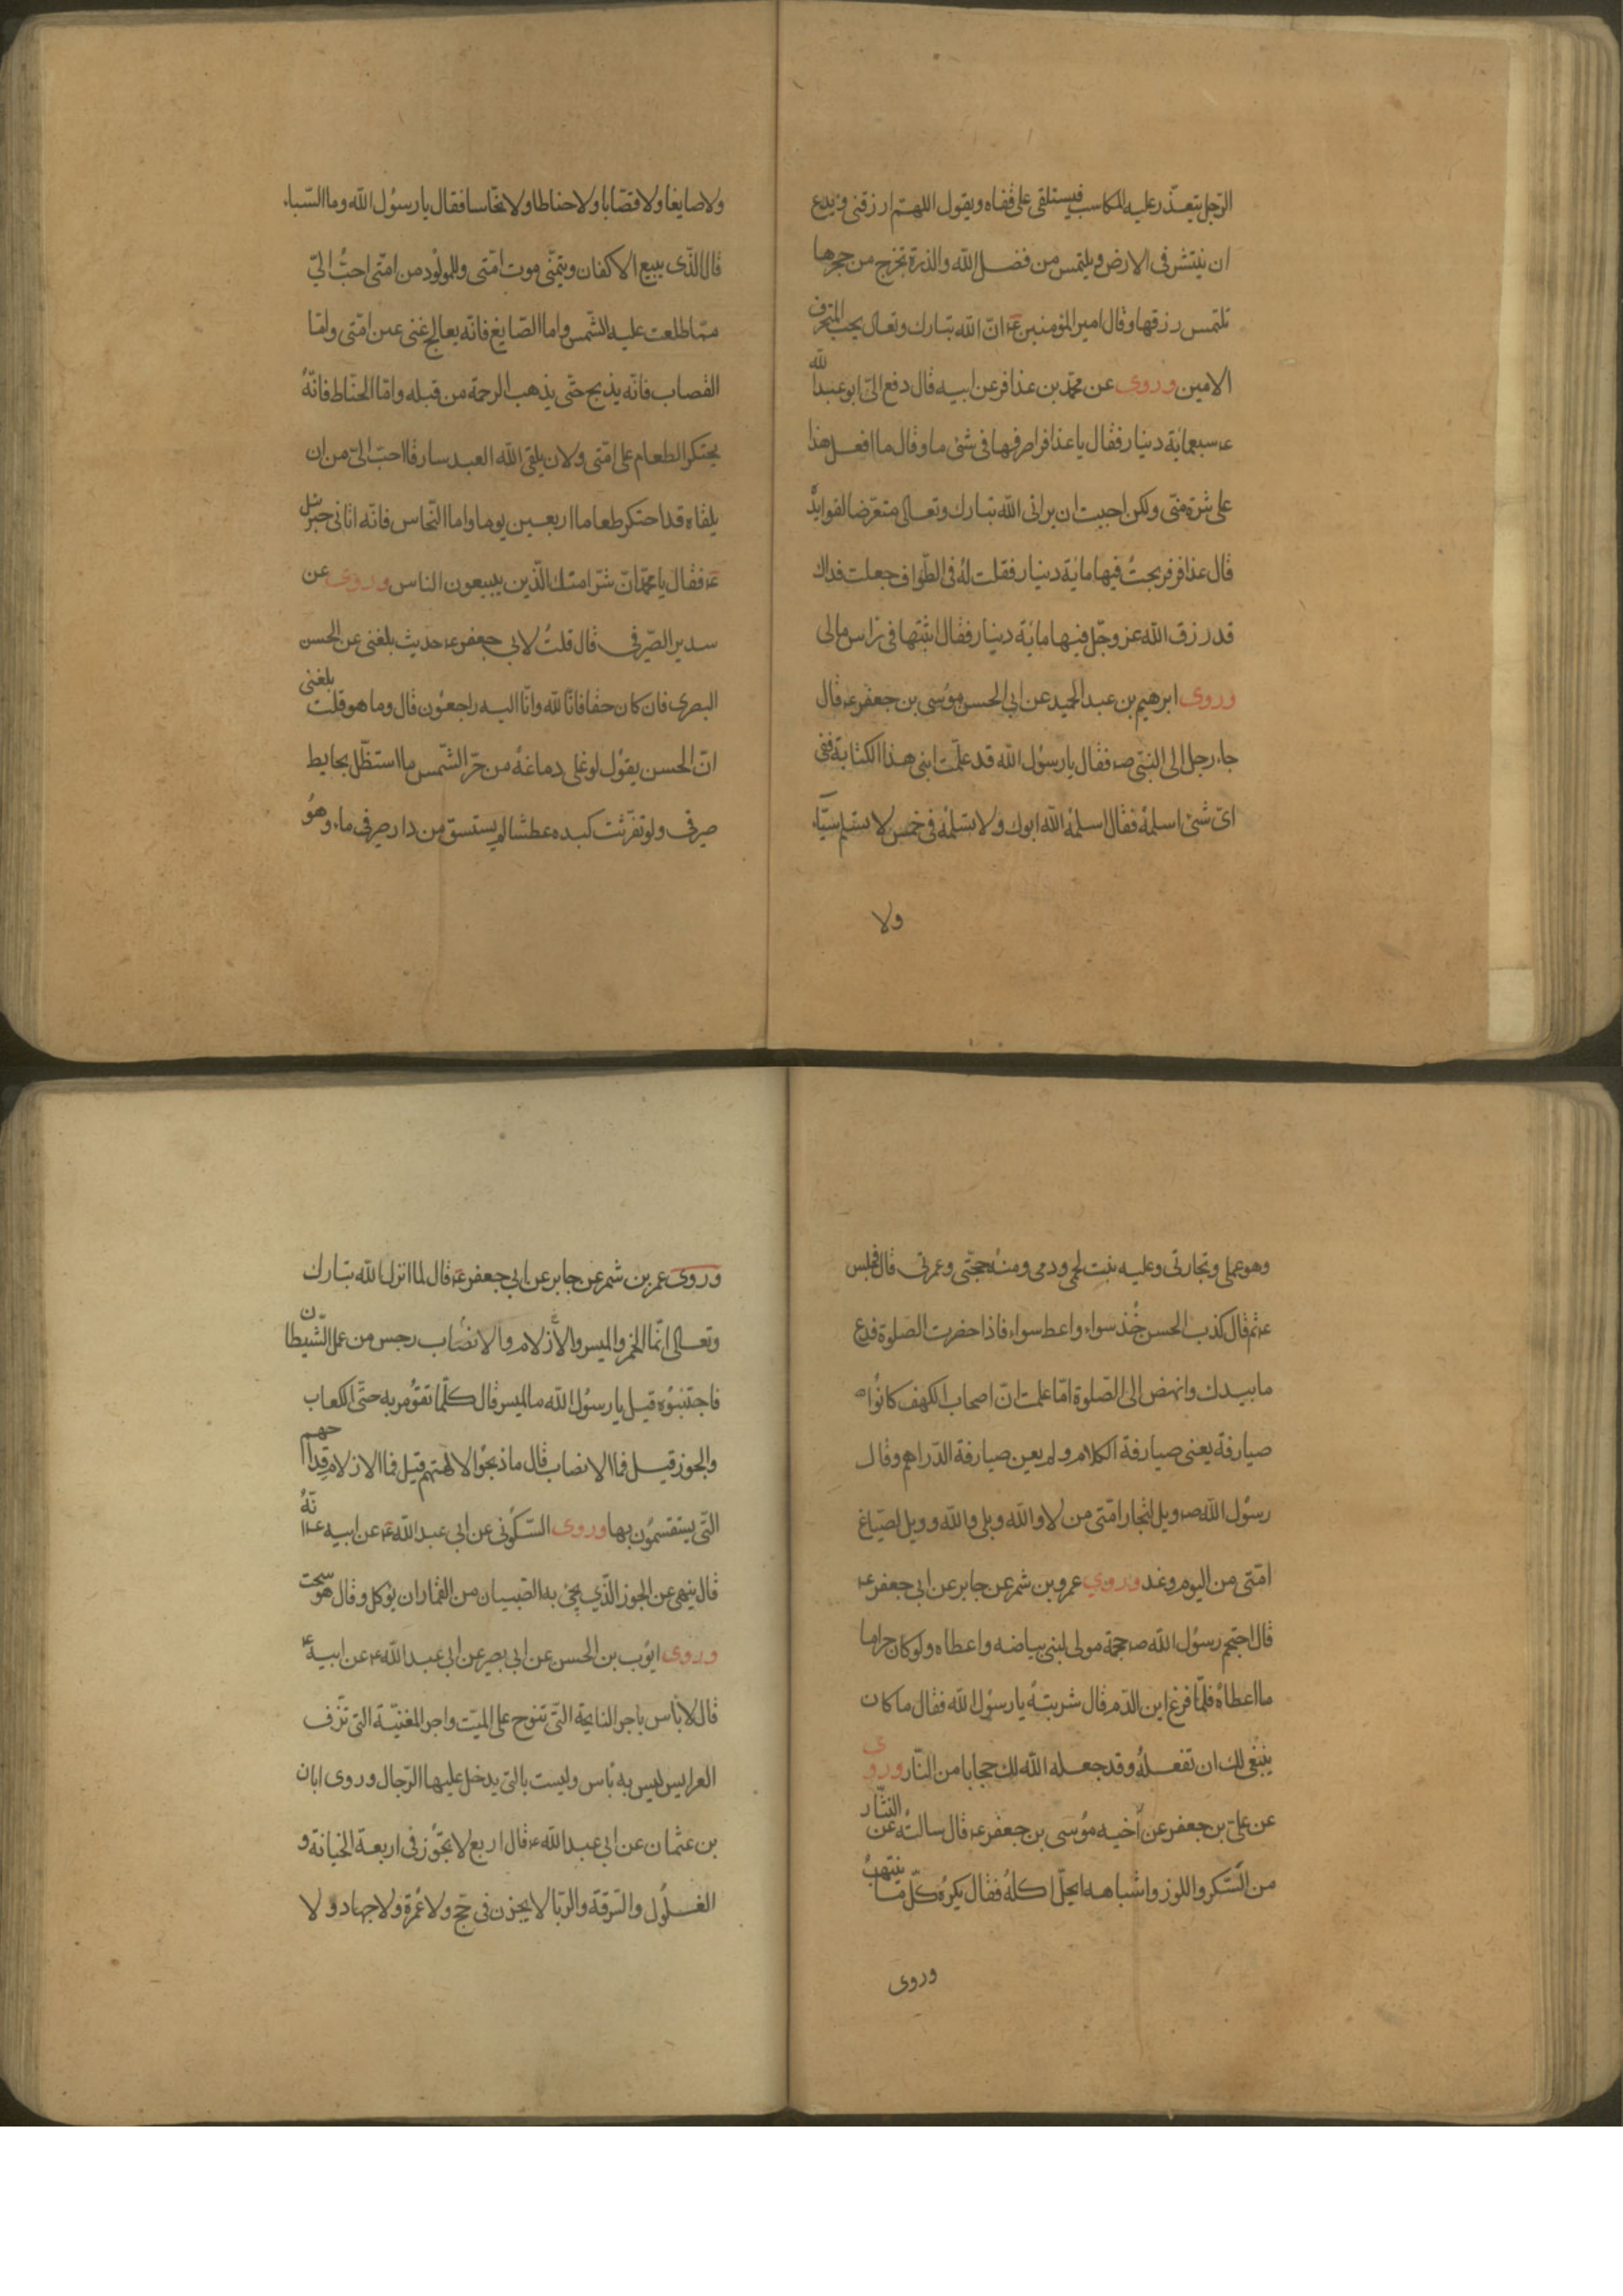 الرّجل يتعذّر عليه المكاسب فيستلقى على قفاه ويقول اللهمّ ارزقنى ويدع
ان ينتشر فى الارض ويلتمس من فضل الله والذرة تخرج من حجرها
تلتمس رزقها وقال امير المؤمنين ع انّ الله تبارك وتعالى يحب المحترف
الامين وروى عن محمّد بن عذافر عن ابيه قال دفع الىّ ابو عبد الله
ع سبعمائة دينار فقال يا عذافر اصرفها فى شئ ما وقال ما افعل هذا
على شره منّى ولكن احببت ان يرانى الله تبارك وتعالى متعرّضا لفوايده
قال عذافر فربحتُ فيها مائة دينار فقلت له فى الطّواف جعلت فداك
قد رزق الله عز وجلّ فيها مائة دينار فقال اثبتها فى راس مالى
وروى ابرهيم بن عبد الحميد عن ابى الحسن موسى بن جعفر ع قال
جاء رجل الى النبىّ ص فقال يا رسول الله قد علّمت ابنى هذا الكتابة ففى
اىّ شئ اسلمهُ فقال اسلمهُ الله ابوك ولا تسلمهُ فى خمس لا تسلم سبّاء
ولا
ولا صايغا ولا قصّابا ولا حناطا ولا نخّاسا فقال يا رسول الله وما السّباء
قال الذّى يبيع الاكفان ويتمنّى موت امّتى وللمولود من امّتى احبُّ الىّ
ممّا طلعت عليه الشّمس واما الصّايغ فانّه يعالج غنى عن امّتى وامّا
القصاب فانّه يذبح حتّى يذهب الرحمة من قبله وامّا الحنّاط فانّهُ
يحتكر الطعام على امّتى ولان يلقى الله العبد سارقا احبّ الىّ من ان
يلقاه قد احتكر طعاما اربعين يوما واما النّحاس فانّه اتانى جبرئيل
ع فقال يا محمّد انّ شرّ امتك الّذين يبيعون الناس وروى عن
سدير الصّيرفى قال قلتُ لابى جعفر ع حديث بلغنى عن الحسن
البصرى فان كان حقا فانّا لله وانّا اليه راجعون قال وما هو قلت بلغنى
انّ الحسن يقول لو غلى دماغهُ من حرّ الشّمس ما استظّل بحايط
صيرفى ولو تفرّثت كبده عطشا لم يستسق من دار صيرفى ماء وهو
وهو عملى وتجارتى وعليه نبت لحمى ودمى ومنهُ حجّتى وعمرتى قال فجلس
ع ثم قال كذب الحسن خُذ سواء واعط سواء فاذا حضرت الصّلوة فدع
ما بيدك وانهض الى الصّلوة امّا علمت انّ اصحاب الكهف كانوا
صيارفة يعنى صيارفة الكلام ولم يعن صيارفة الدّراهم وقال
رسول الله ص ويل لتجار امّتى من لا والله وبلى والله وويل لصيّاغ
امّتى من اليوم وغد وروي عمرو بن شمر عن جابر عن ابى جعفر ع
قال احتجم رسول الله ص حجمة مولى لبنى بياضه واعطاه ولو كان حراما
ما اعطاهُ فلمّا فرغ اين الدّم قال شربتهُ يا رسول الله فقال ما كان
ينبغى لك ان تفعلهُ وقد جعله الله لك حجابا من النّار وروى
عن علىّ بن جعفر عن اخيه موسى بن جعفر ع قال سالتهُ عن النثّار
من السّكر واللوز واشباهه ايحلّ اكلهُ فقال يكره كلّ ما ينتهبُ
وروى
وروى عمر بن شمر عن جابر عن ابى جعفر ع قال لما انزل الله تبارك
وتعالى انّما الخمر والميسر والأزلام والانصاب رجس من عمل الشّيطان
فاجتنبوه قيل يا رسول الله ما الميسر قال كلّما تقوُمر به حتّى الكعاب
والجوز قيل فما الانصاب قال ما ذبحوا لالهتهم قيل فما الازلام قداحهم
التّى يستقسمون بها وروى السّكونى عن ابى عبد الله ع عن ابيه ع انّهُ
قال ينهى عن الجوز الّذي يجئ به الصّبيان من القمار ان يوكل وقال هو سحت
وروى ايّوب بن الحسن عن ابى بصير عن ابى عبد الله ع عن ابيه ع
قال لا بأس باجر النايحة التّى تنوح على الميّت واجر المغنيّة التى تزّف
العرايس ليس به بأس وليست بالتى يدخل عليها الرّجال وروى ابان
بن عثمان عن ابى عبد الله ع قال اربع لا تجوّز فى اربعة الخيانة و
الغلول والسّرقة والرّبا لا يجزن فى حجّ ولا عُمرة ولا جهاد ولا